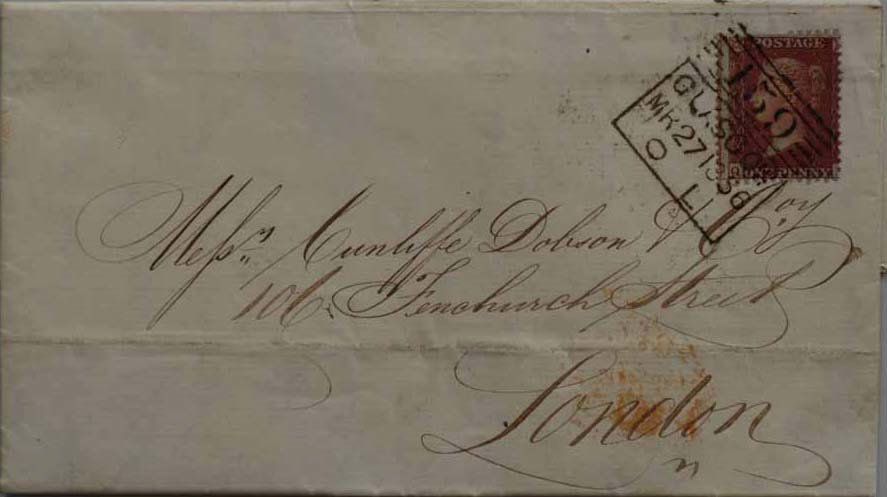 POSTAGE
ONE PENNY
159
GLASGOW
MR 27 1856
O L
Messrs Cunliffe Dobson & Coy
106, Fenchurch Street
London